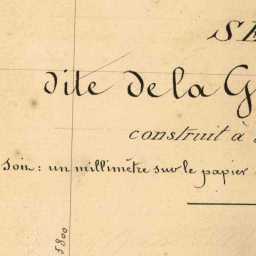 SE
dite de la G
construit à
soit : un millimètre sur le papier
5800